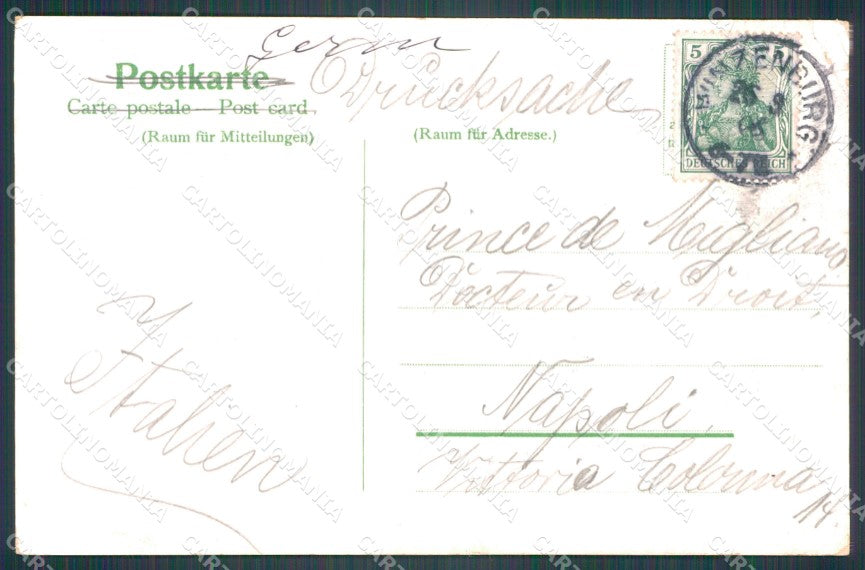 Germ
Postkarte
Drucksache
Carte postale — Post card.
(Raum für Mitteilungen)
(Raum für Adresse.)
5
DEUTSCHES REICH
MÜNZENBURG
Prince de Migliano
Docteur en Droit,
Napoli,
Vittoria Colonna
14.
Italien
CARTOLINOMANIA